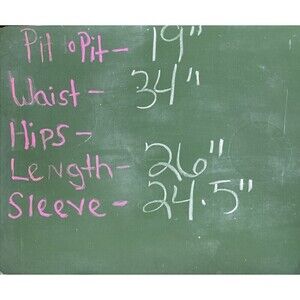 Pit to Pit - 19"
Waist - 34"
Hips -
Length - 26"
Sleeve - 24.5"